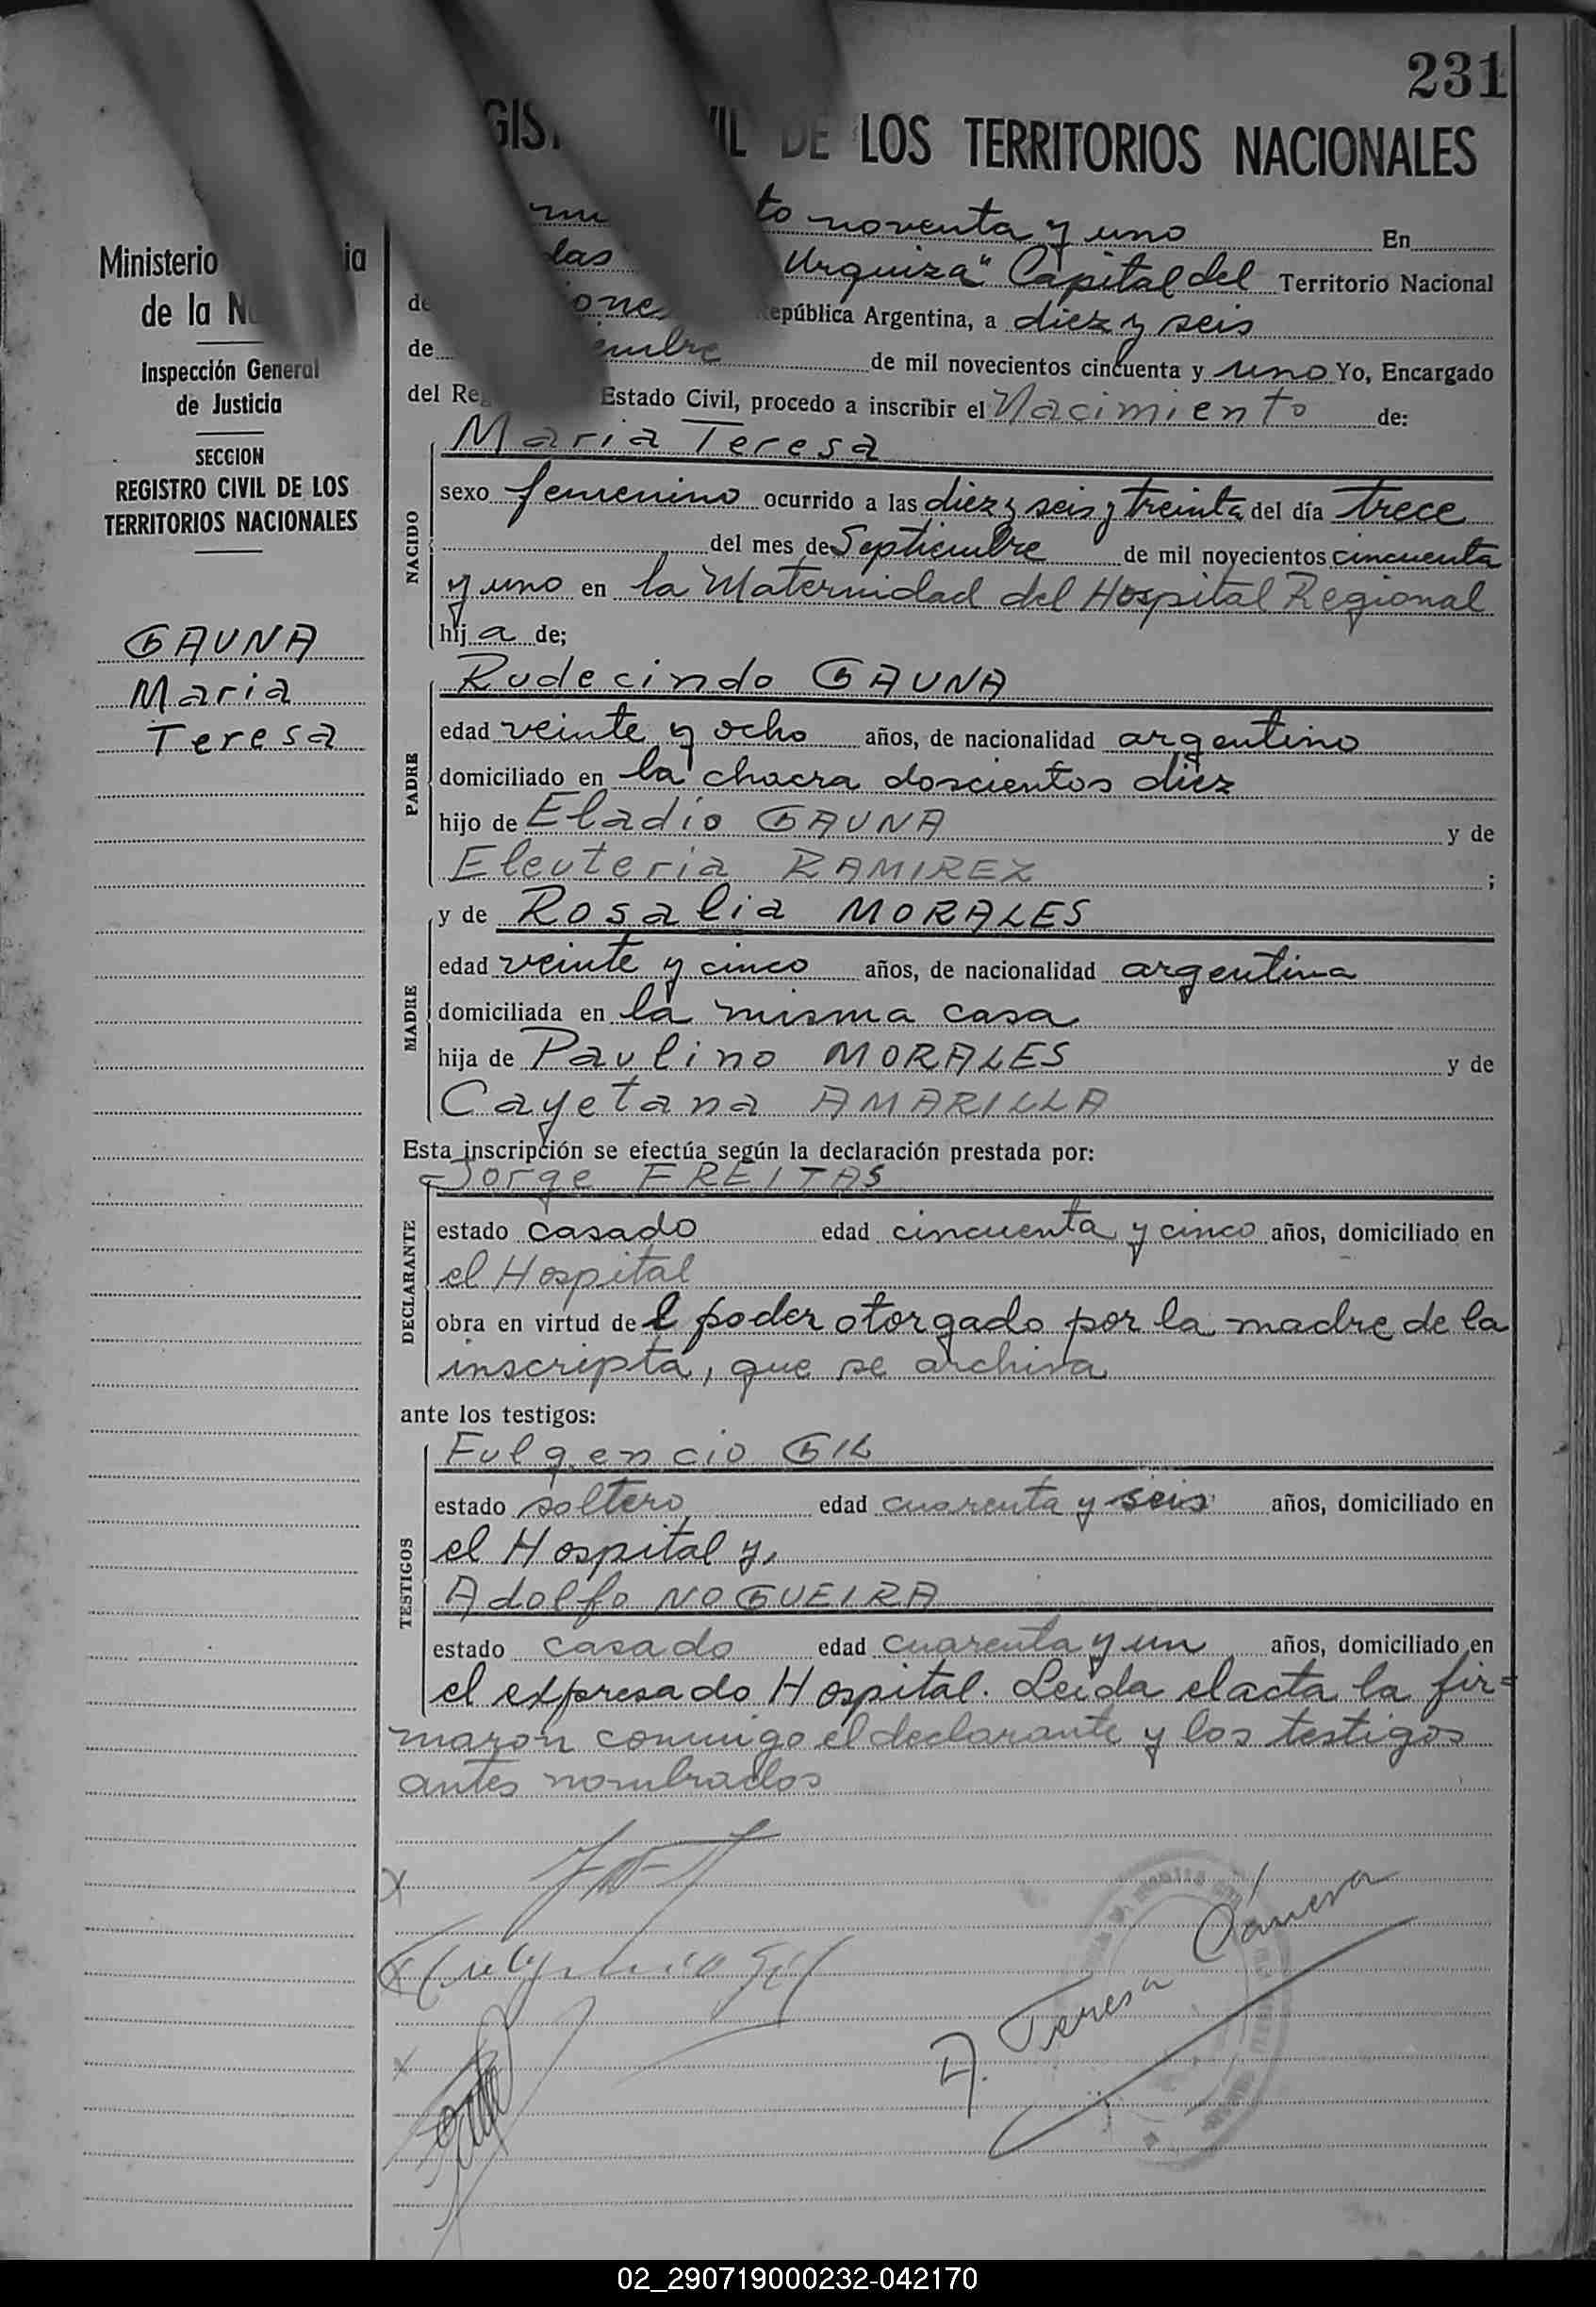 231
DE LOS TERRITORIOS NACIONALES
noventa y uno En
Urquiza" Capital del Territorio Nacional
de República Argentina, a diez y seis
de de mil novecientos cincuenta y uno Yo, Encargado
del Estado Civil, procedo a inscribir el Nacimiento de:
Maria Teresa
NACIDO
sexo femenino ocurrido a las diez y seis y treinta del día trece
del mes de Septiembre de mil novecientos cincuenta
y uno en la Maternidad del Hospital Regional
hij a de;
Rudecindo GAUNA
PADRE
edad veinte y ocho años, de nacionalidad argentino
domiciliado en la chacra doscientos diez
hijo de Eladio GAUNA y de
Eleuteria RAMIREZ ;
y de Rosalia MORALES
MADRE
edad veinte y cinco años, de nacionalidad argentina
domiciliada en la misma casa
hija de Paulino MORALES y de
Cayetana AMARILLA
Esta inscripción se efectúa según la declaración prestada por:
Jorge FREITAS
DECLARANTE
estado casado edad cincuenta y cinco años, domiciliado en
el Hospital
obra en virtud de l poder otorgado por la madre de la
inscripta, que se archiva
ante los testigos:
Fulgencio GIL
TESTIGOS
estado soltero edad cuarenta y seis años, domiciliado en
el Hospital y,
Adolfo NOGUEIRA
estado casado edad cuarenta y un años, domiciliado en
el expresado Hospital. Leída el acta la fir=
maron conmigo el declarante y los testigos
antes nombrados
Ministerio
de la
Inspección General
de Justicia
SECCION
REGISTRO CIVIL DE LOS
TERRITORIOS NACIONALES
GAUNA
Maria
Teresa
Fulgencio Gil
A. Teresa
02_290719000232-042170